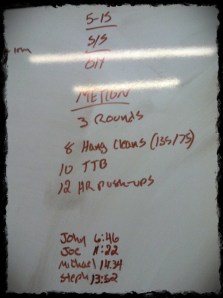 5-15
S/S
METCON
3 Rounds
8 Hang Cleans (155/75)
10 TTB
12 HR push-ups
John 6:46
Joe 8:22
Michael 14:34
Steph 13:52